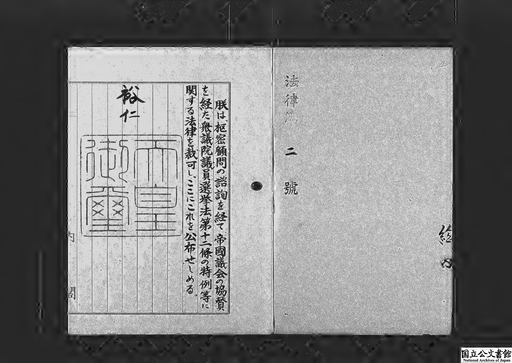 法律
二
號
朕は、枢密顧問の諮詢を経て、帝國議会の協賛
を経た衆議院議員選挙法第十二條の特例等に
関する法律を裁可し、ここにこれを公布せしめる。
裕仁
天皇
御璽
内閣
国立公文書館
National Archives of Japan